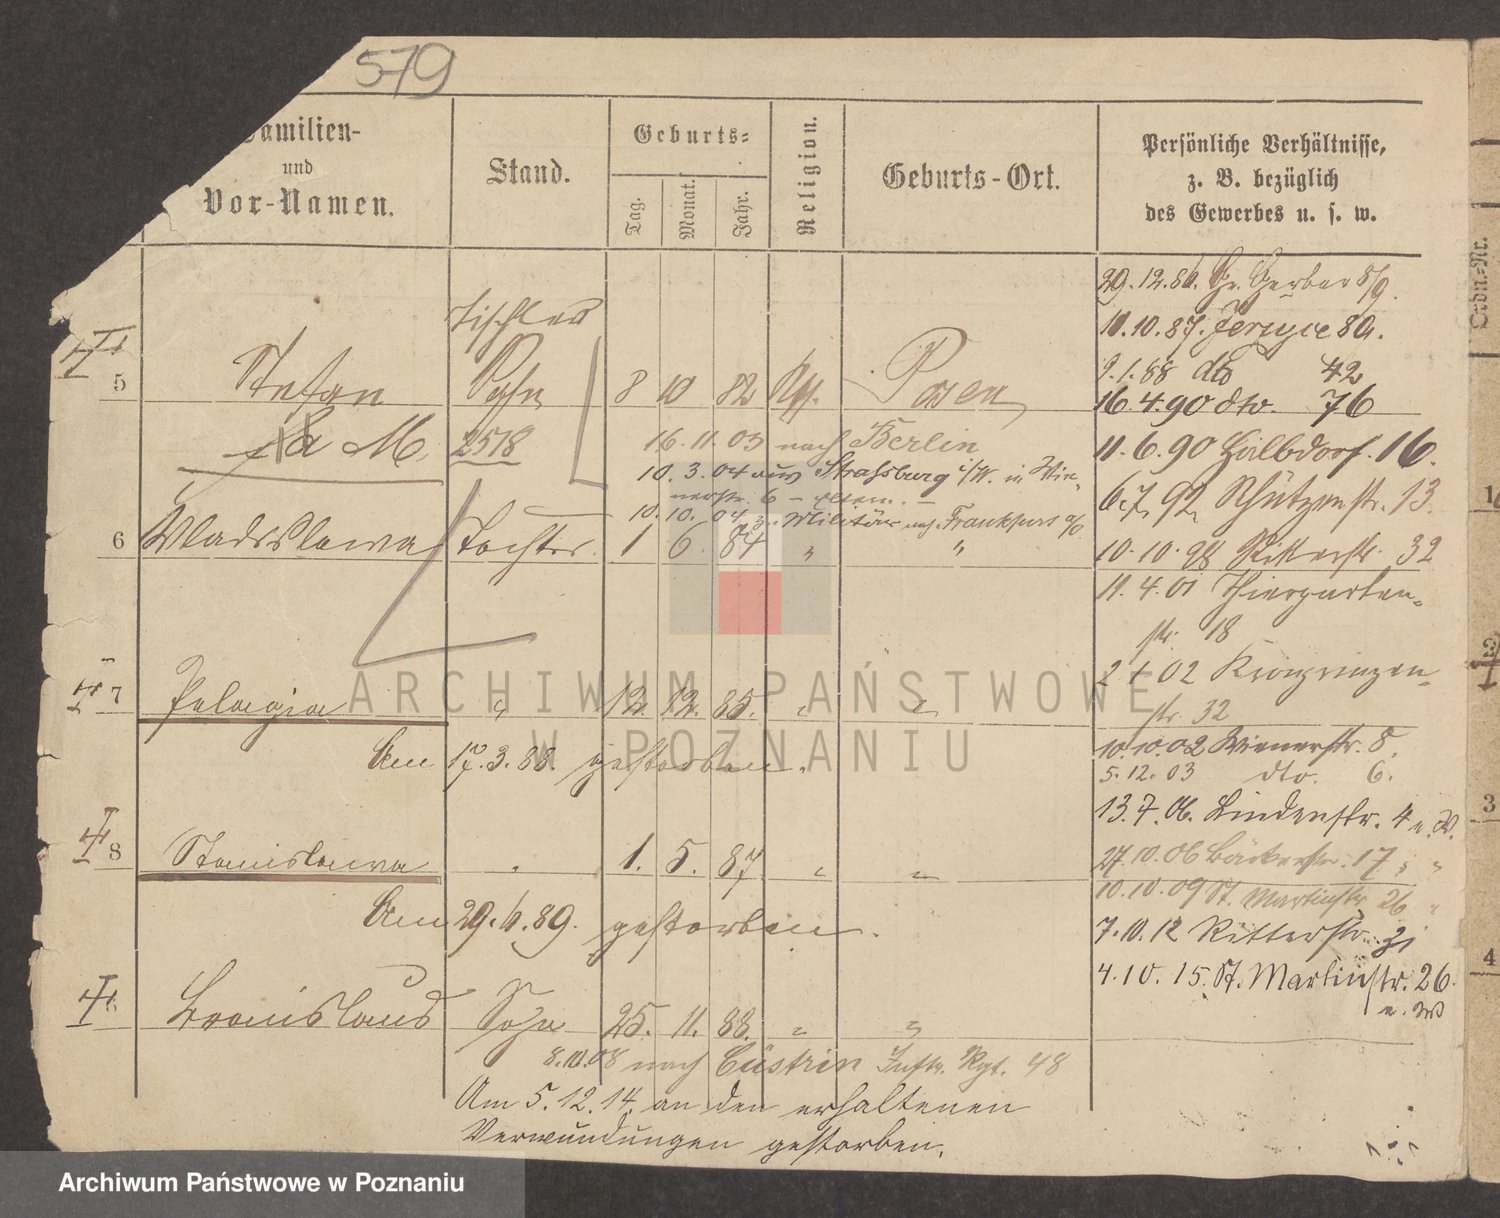 579
Familien-
und
Vor-Namen.
Stand.
Geburts-
Tag.
Monat.
Jahr.
Religion.
Geburts-Ort.
Persönliche Verhältnisse,
z. B. bezüglich
des Gewerbes u. s. w.
Ordn.-Nr.
Tischler
5 Stefan Sohn 8 10 82 Kth. Posen
M. 2518 16. 11. 03 nach Berlin
10. 3. 04 aus Strassburg i/W. in Wie-
nerstr. 6 – Eltern. –
10. 10. 04 z. Militär nach Frankfurt a/O.
6 Wladislawa Tochter 1 6. 84 " "
7 Pelagia " 12. 12. 85. " "
Am 17. 3. 88. gestorben.
8 Stanislawa " 1. 5. 87 " "
Am 29. 4. 89. gestorben.
Bronislaus Sohn 25. 11. 88. " "
8.10.08 nach Cüstrin Inftr. Rgt. 48
Am 5. 12. 14. an den erhaltenen
Verwundungen gestorben.
29. 12. 86. Gr. Gerber 8/9.
10. 10. 87. Jerzyce 89.
9. 1. 88 dto 42
16. 4. 90 dto. 76
11. 6. 90 Halbdorf. 16.
6. 7. 92 Schützenstr. 13.
10. 10. 98 Ritterstr. 32
11. 4. 01 Thiergarten-
str. 18
02 Kronprinzen-
str. 32
10. 10. 02 Wienerstr. 8.
5. 12. 03 dto. 6.
13. 7. 06. Lindenstr. 4 e. W.
27. 10. 06 Bäckerstr. 17 " "
10. 10. 09 St. Martinstr 26 "
7. 10. 12 Ritterstr. 31
4. 10. 15. St. Martinstr. 26
e. W
1
2
3
4
ARCHIWUM PAŃSTWOWE
W POZNANIU
Archiwum Państwowe w Poznaniu